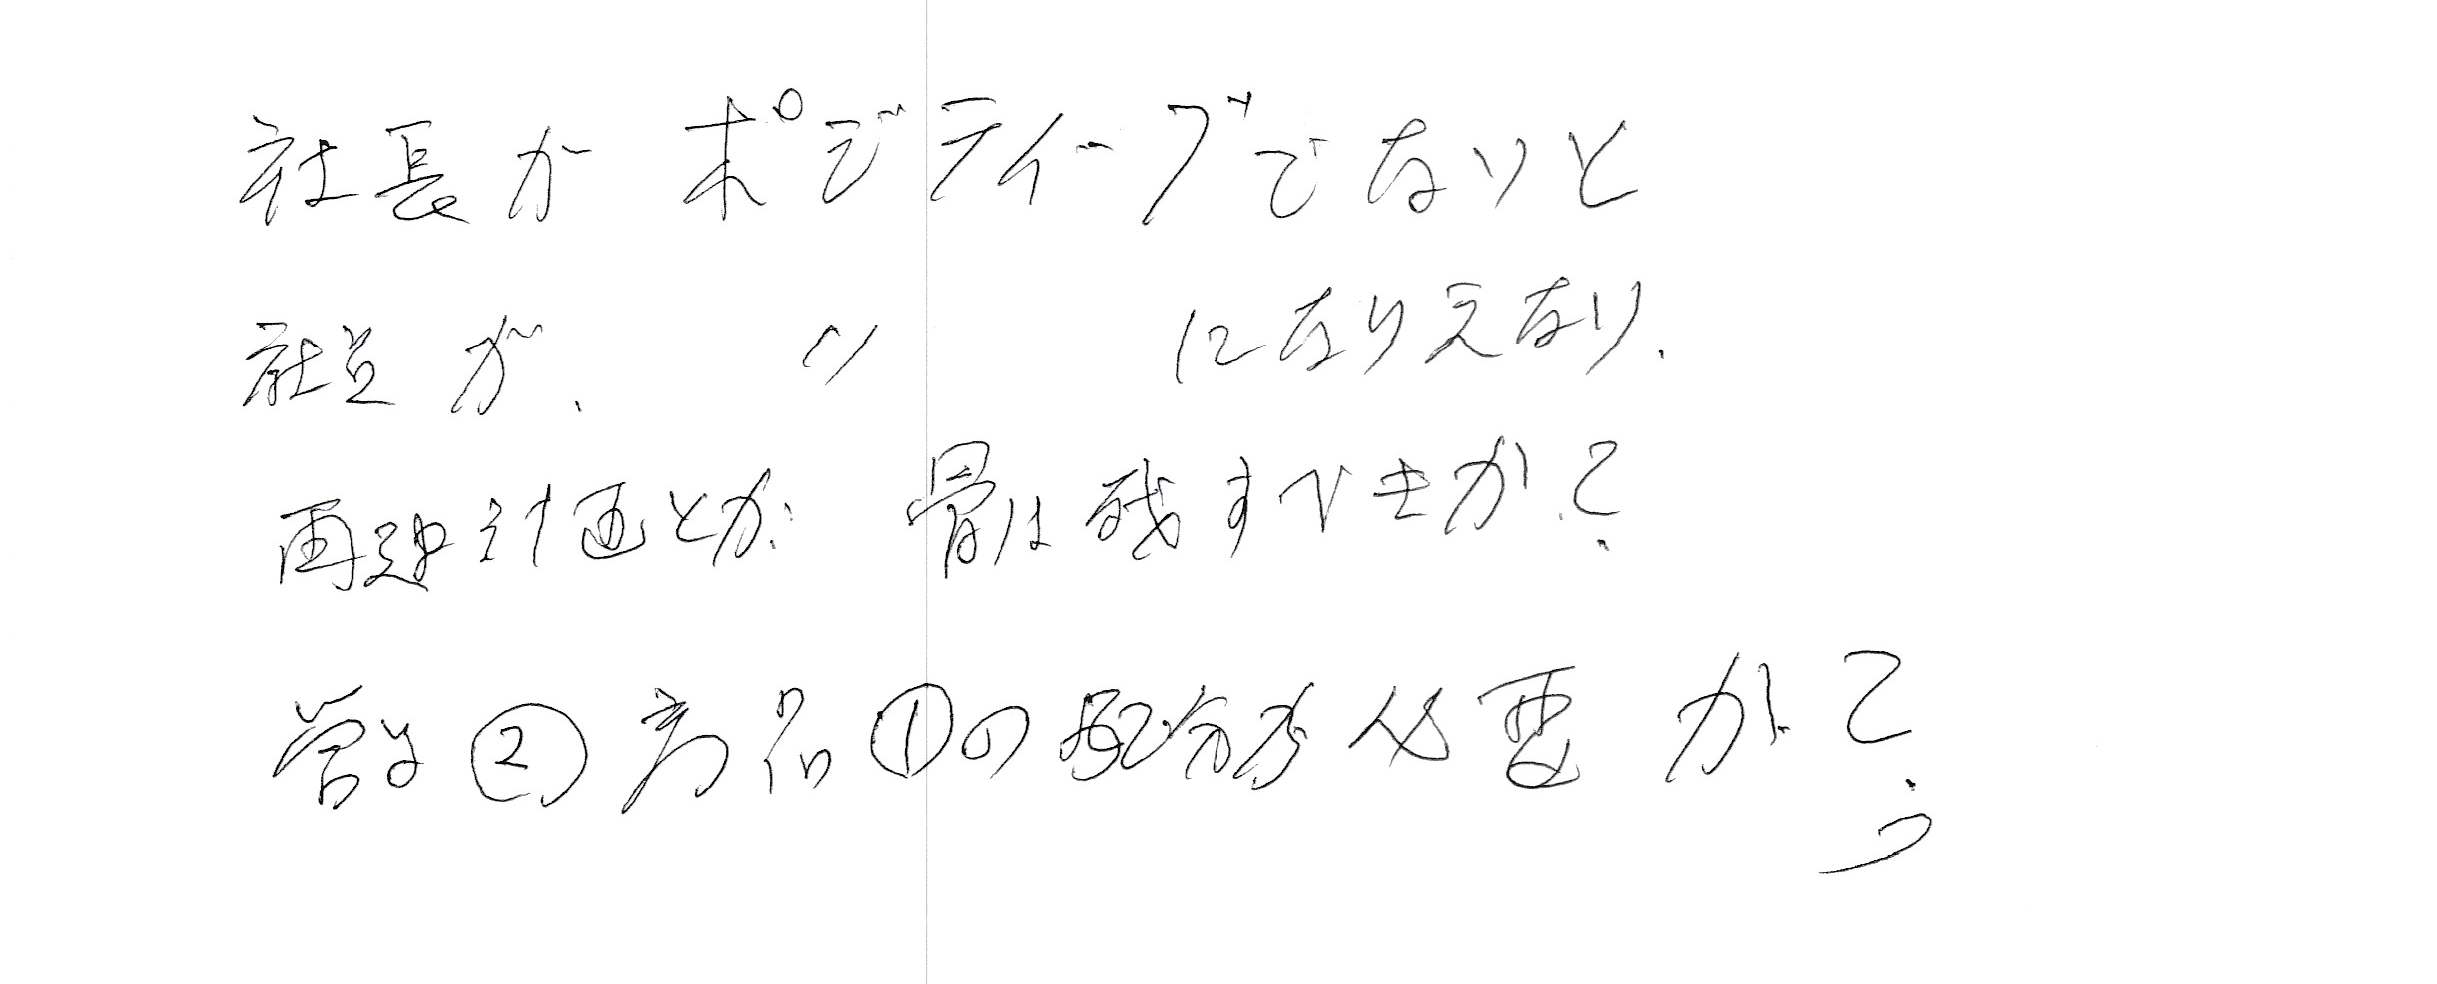 社長がポジティーブでないと
社員が、 〃 になりえない.
再建計画とか 骨は残すべきか?
営業② 商品①の配分が必要か?